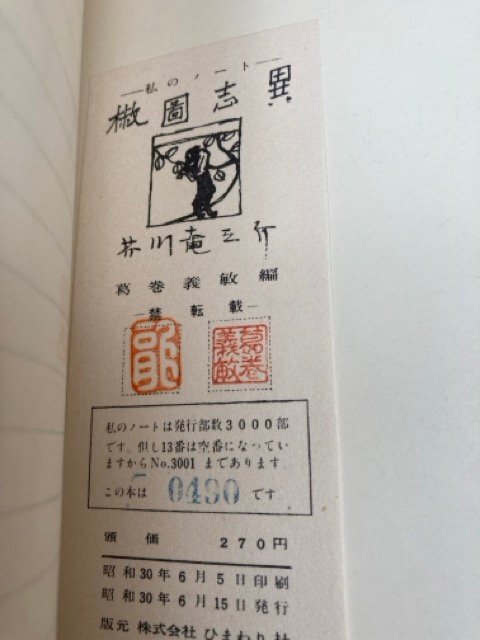 ―私のノート―
椒圖志異
芥川竜之介
葛巻義敏編
―禁転載―
葛巻義敏
私のノートは発行部数3000部
です。但し13番は空番になってい
ますからNo.3001 まであります。
この本は 0490 です。
頒価 270円
昭和30年6月5日印刷
昭和30年6月15日発行
版元 株式会社 ひまわり社